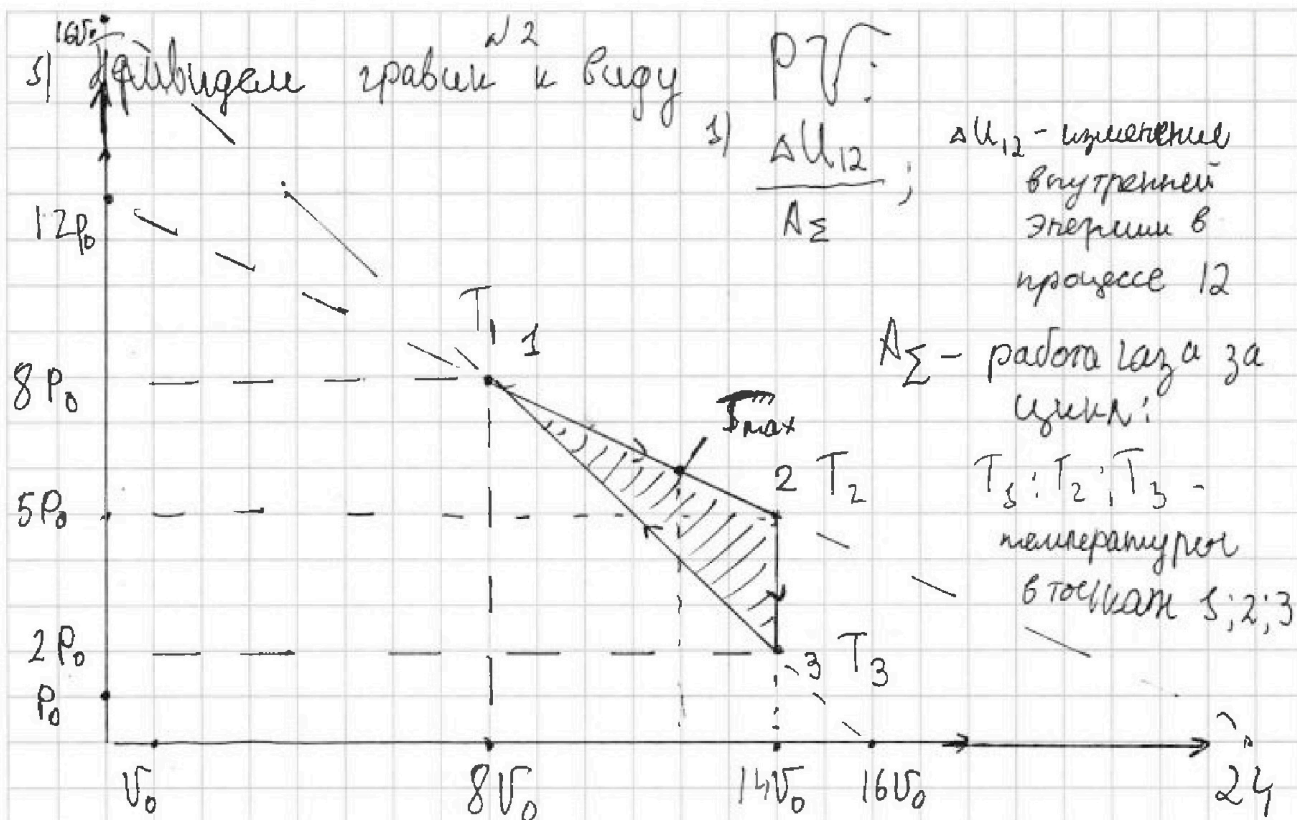 16V₀
N2
1) Приведем график к виду PV:
1) ΔU₁₂ / A_Σ ;
ΔU₁₂ - изменение
внутренней
энергии в
процессе 12
A_Σ - работа газа за
цикл:
T₁; T₂; T₃ -
температуры
в точках 1; 2; 3
12P₀
T₁ 1
8P₀
Tmax
2 T₂
5P₀
2P₀
3 T₃
P₀
V₀ 8V₀ 14V₀ 16V₀ 24